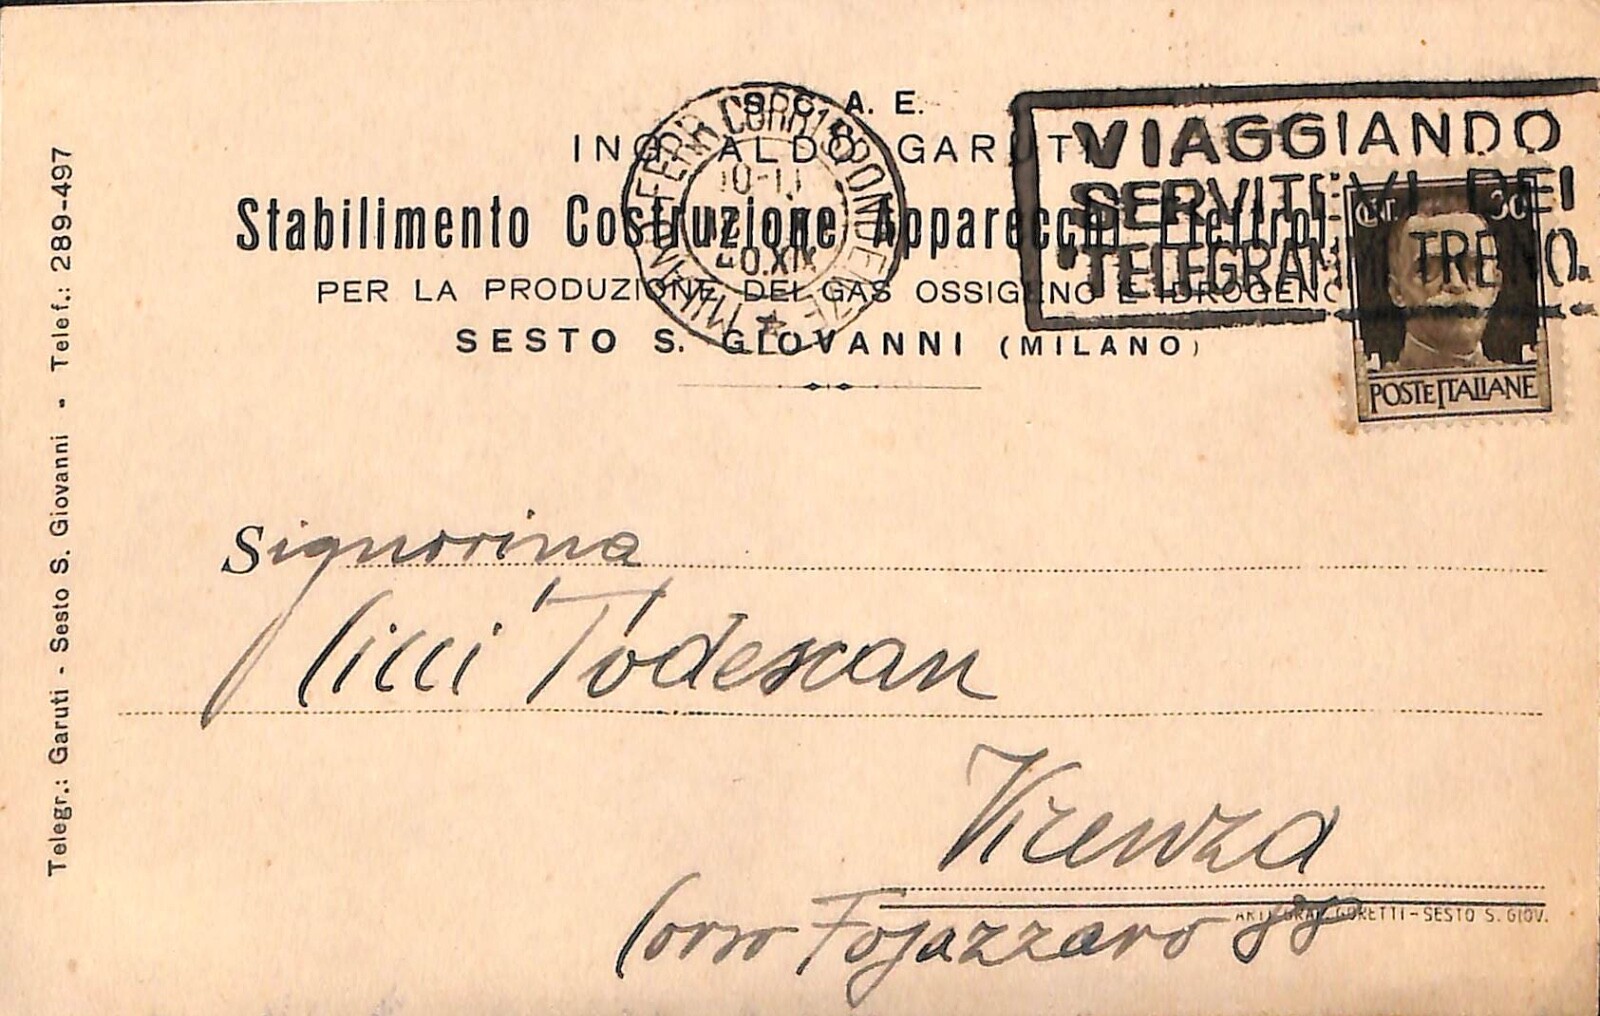 S. C. A. E.
ING. ALDO GARUTI
Stabilimento Costruzione Apparecchi
PER LA PRODUZIONE DEI GAS OSSIGENO E IDROGENO
SESTO S. GIOVANNI (MILANO)
MILANO FERR. CORRISPONDENZE
10-11
XIX
VIAGGIANDO
SERVITEVI DEI
TELEGRAMMI TRENO.
CENT. 30
POSTE ITALIANE
Telegr.: Garuti - Sesto S. Giovanni - Telef.: 289-497
Signorina
Cicci Todescan
Vicenza
Corso Fogazzaro 88
ARTI GRAF. GORETTI - SESTO S. GIOV.